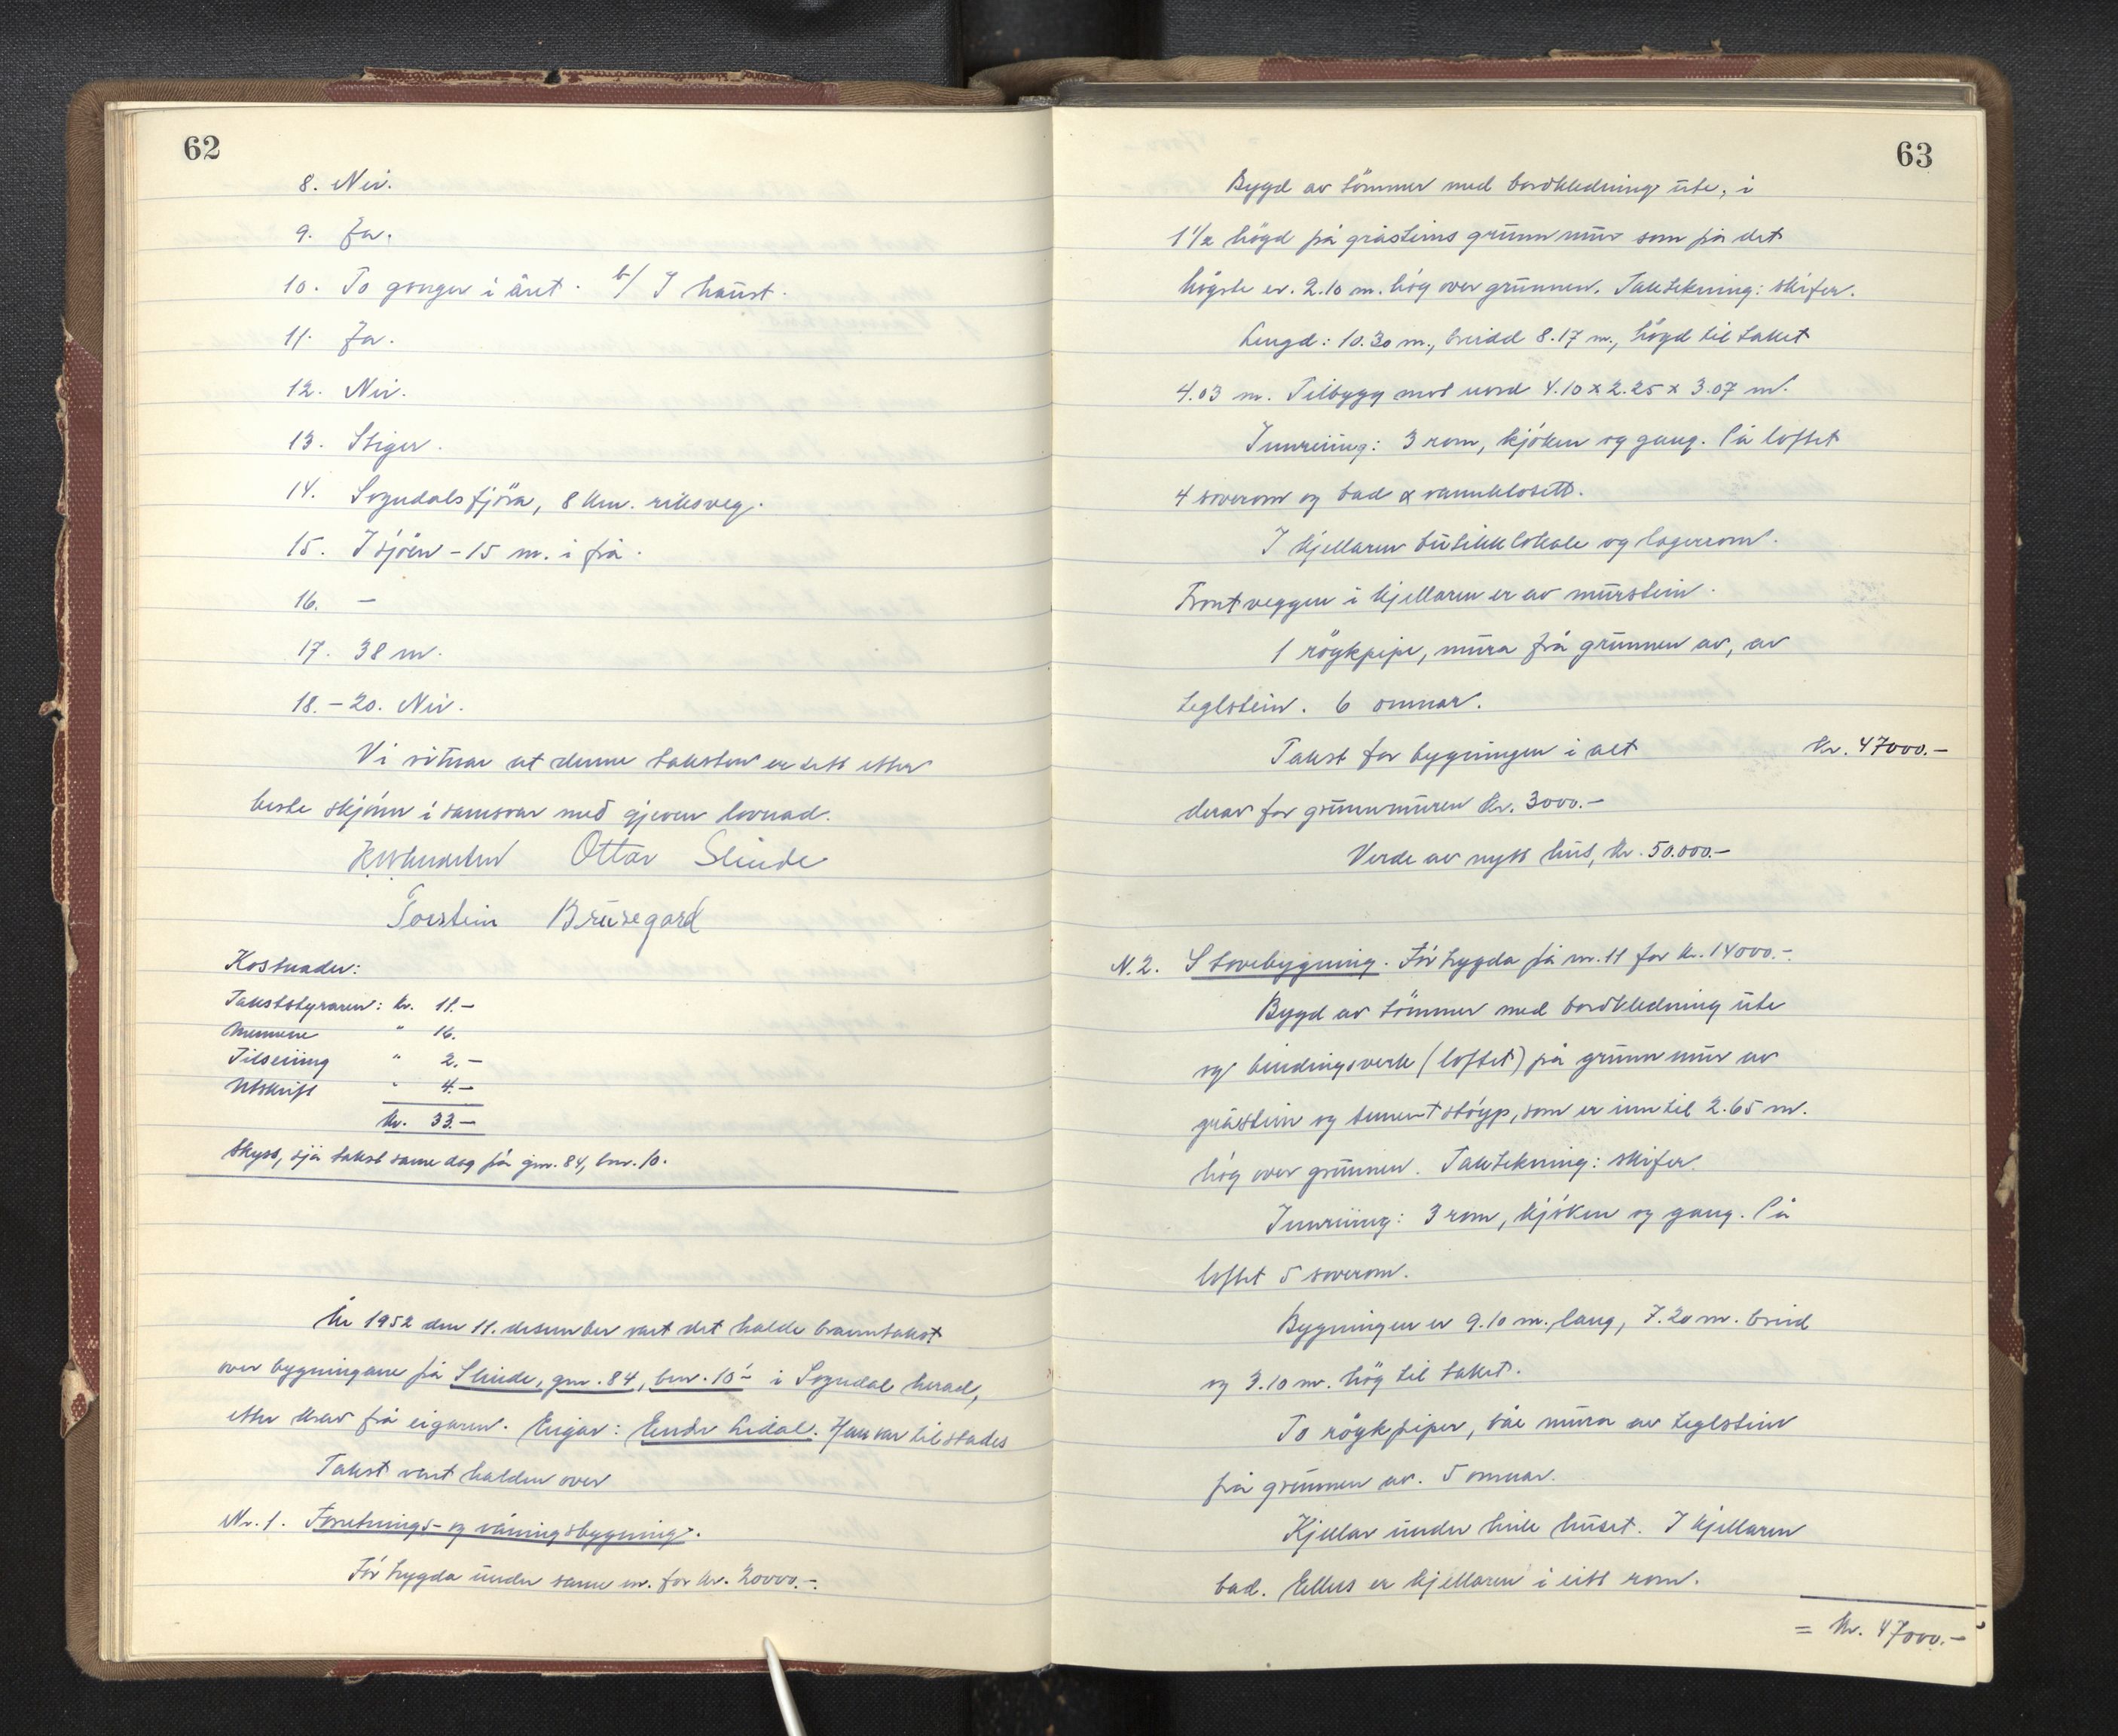 62
8. Nei.
9. Ja.
10. To gonger i året. b/ I haust.
11. Ja.
12. Nei.
13. Stiger.
14. Sogndalsfjöra, 8 km. riksveg.
15. I sjöen - 15 m. i frå.
16. —
17. 38 m.
18. - 20. Nei.
Vi vitnar at denne taksten er sett etter
beste skjönn i samsvar med gjeven lovnad.
Ottar Slinde
Torstein Brusegard
Kostnader:
Takststyraren: kr. 11.-
Mennene " 16.
Tilseiing " 2.-
Utskrift " 4.-
kr. 33.-
Skyss, sjå takst same dag på gnr. 84, bnr. 10.
År 1952 den 11. desember vart det halde branntakst
over bygningane på Slinde, gnr. 84, bnr. 10 - i Sogndal herad,
etter krav frå eigaren. Eigar: Endr Lidal. Han var til stades
Takst vart halden over
Nr. 1. Forretnings- og våningsbygning.
För trygda under same nr. for kr. 20000.-.
63
Bygd av tömmer med bordkledning ute, i
1 1/2 högd på gråsteins grunnmur som på det
högste er. 2.10 m. hög over grunnen. Taktekning: skifer.
Lengd: 10.30 m., breidd 8.17 m., högd til taket
4.03 m. Tilbygg mot nord 4.10 x 2.25 x 3.07 m.
Innreiing: 3 rom, kjöken og gang. På loftet
4 soverom og bad & vannklosett.
I kjellaren butikklokale og lagerrom.
Frontveggen i kjellaren er av murstein.
1 röykpipe, mura frå grunnen av, av
teglstein. 6 omnar.
Takst for bygningen i alt kr. 47000.-
derav for grunnmuren kr. 3000.-
Verde av nytt hus, kr. 50.000.-
N. 2. Stovebygning. För trygda på nr. 11 for kr. 14000.-.
Bygd av tömmer med bordkledning ute
og bindingsverk (loftet) på grunnmur av
gråstein og sementstöyp, som er inntil 2.65 m.
hög over grunnen. Taktekning: skifer.
Innreiing: 3 rom, kjöken og gang. På
loftet 5 soverom.
Bygningen er 9.10 m. lang, 7.20 m. breid
og 3.10 m. hög til taket.
To röykpiper, båe mura av teglstein
frå grunnen av. 5 omnar.
Kjellar under heile huset. I kjellaren
bad. Elles er kjellaren i eitt rom.
= kr. 47000.-